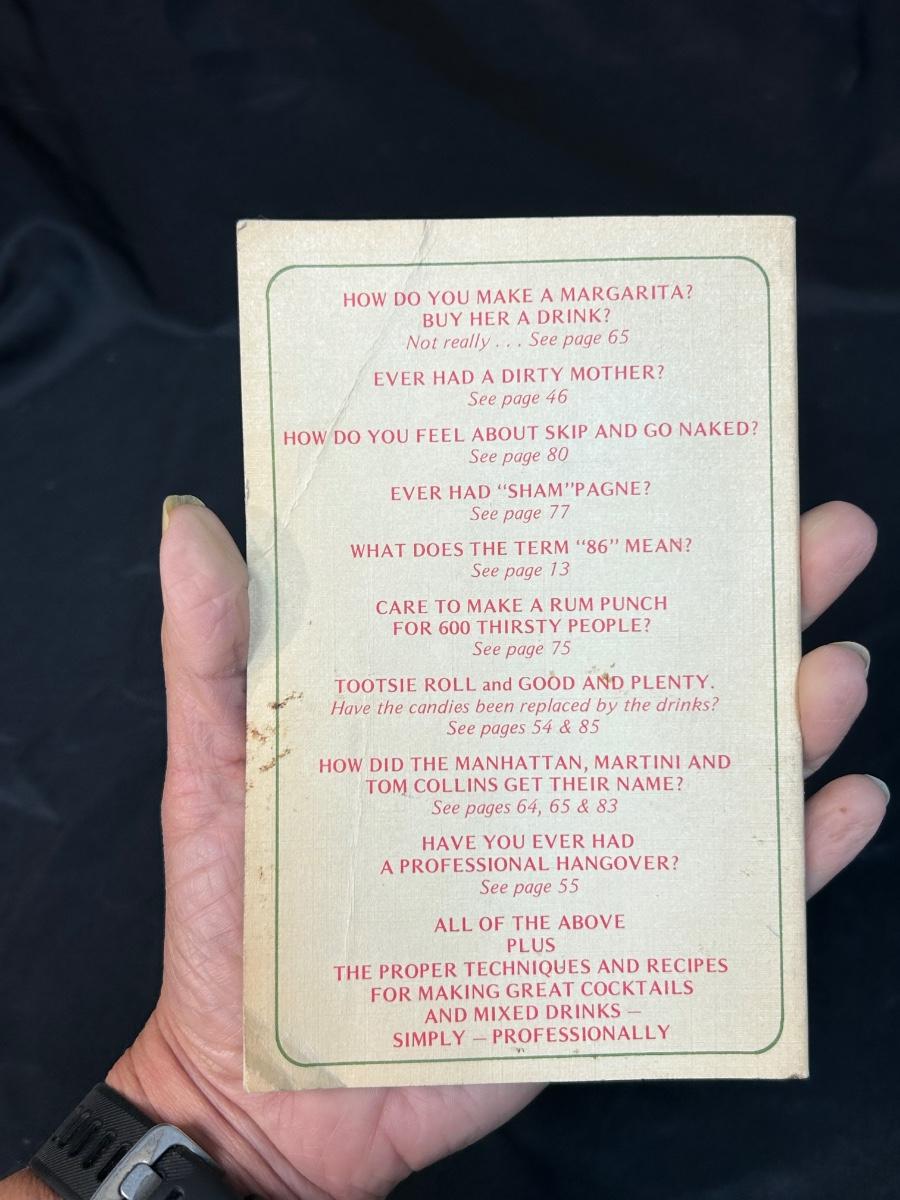 HOW DO YOU MAKE A MARGARITA?
BUY HER A DRINK?
Not really . . . See page 65
EVER HAD A DIRTY MOTHER?
See page 46
HOW DO YOU FEEL ABOUT SKIP AND GO NAKED?
See page 80
EVER HAD “SHAM”PAGNE?
See page 77
WHAT DOES THE TERM “86” MEAN?
See page 13
CARE TO MAKE A RUM PUNCH
FOR 600 THIRSTY PEOPLE?
See page 75
TOOTSIE ROLL and GOOD AND PLENTY.
Have the candies been replaced by the drinks?
See pages 54 & 85
HOW DID THE MANHATTAN, MARTINI AND
TOM COLLINS GET THEIR NAME?
See pages 64, 65 & 83
HAVE YOU EVER HAD
A PROFESSIONAL HANGOVER?
See page 55
ALL OF THE ABOVE
PLUS
THE PROPER TECHNIQUES AND RECIPES
FOR MAKING GREAT COCKTAILS
AND MIXED DRINKS —
SIMPLY — PROFESSIONALLY